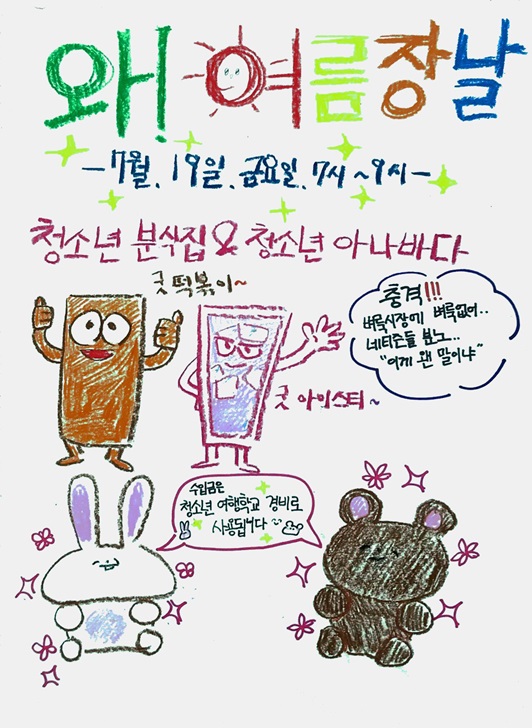 와! 여름장날
-7월. 19일. 금요일. 7시~9시-
청소년 분식집 & 청소년 아나바다
굿 떡볶이~
충격!!!
벼룩시장에 벼룩없어..
네티즌들 분노..
"이게 왠 말이냐"
굿 아이스티~
수입금은
청소년 여행학교 경비로
사용됩니다